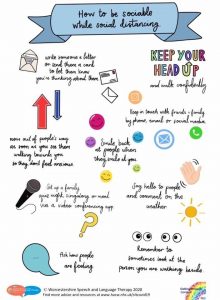 How to be sociable
while social distancing
write someone a letter
or send them a card
to let them know
you're thinking about them
KEEP YOUR
HEAD UP
and walk confidently
move out of people's way
as soon as you see them
walking towards you
so they don't feel anxious
Keep in touch with friends + family
by phone, email or social media
Smile back
at people
when they
smile at you
Set up a family
quiz night, singalong or meal
via a video conferencing app
Say hello to people
and comment on
the weather
Ask how
people are
feeling
Remember to
sometimes look at the
person you are walking beside
© Worcestershire Speech and Language Therapy 2020
Find more advice and resources at www.hacw.nhs.uk/